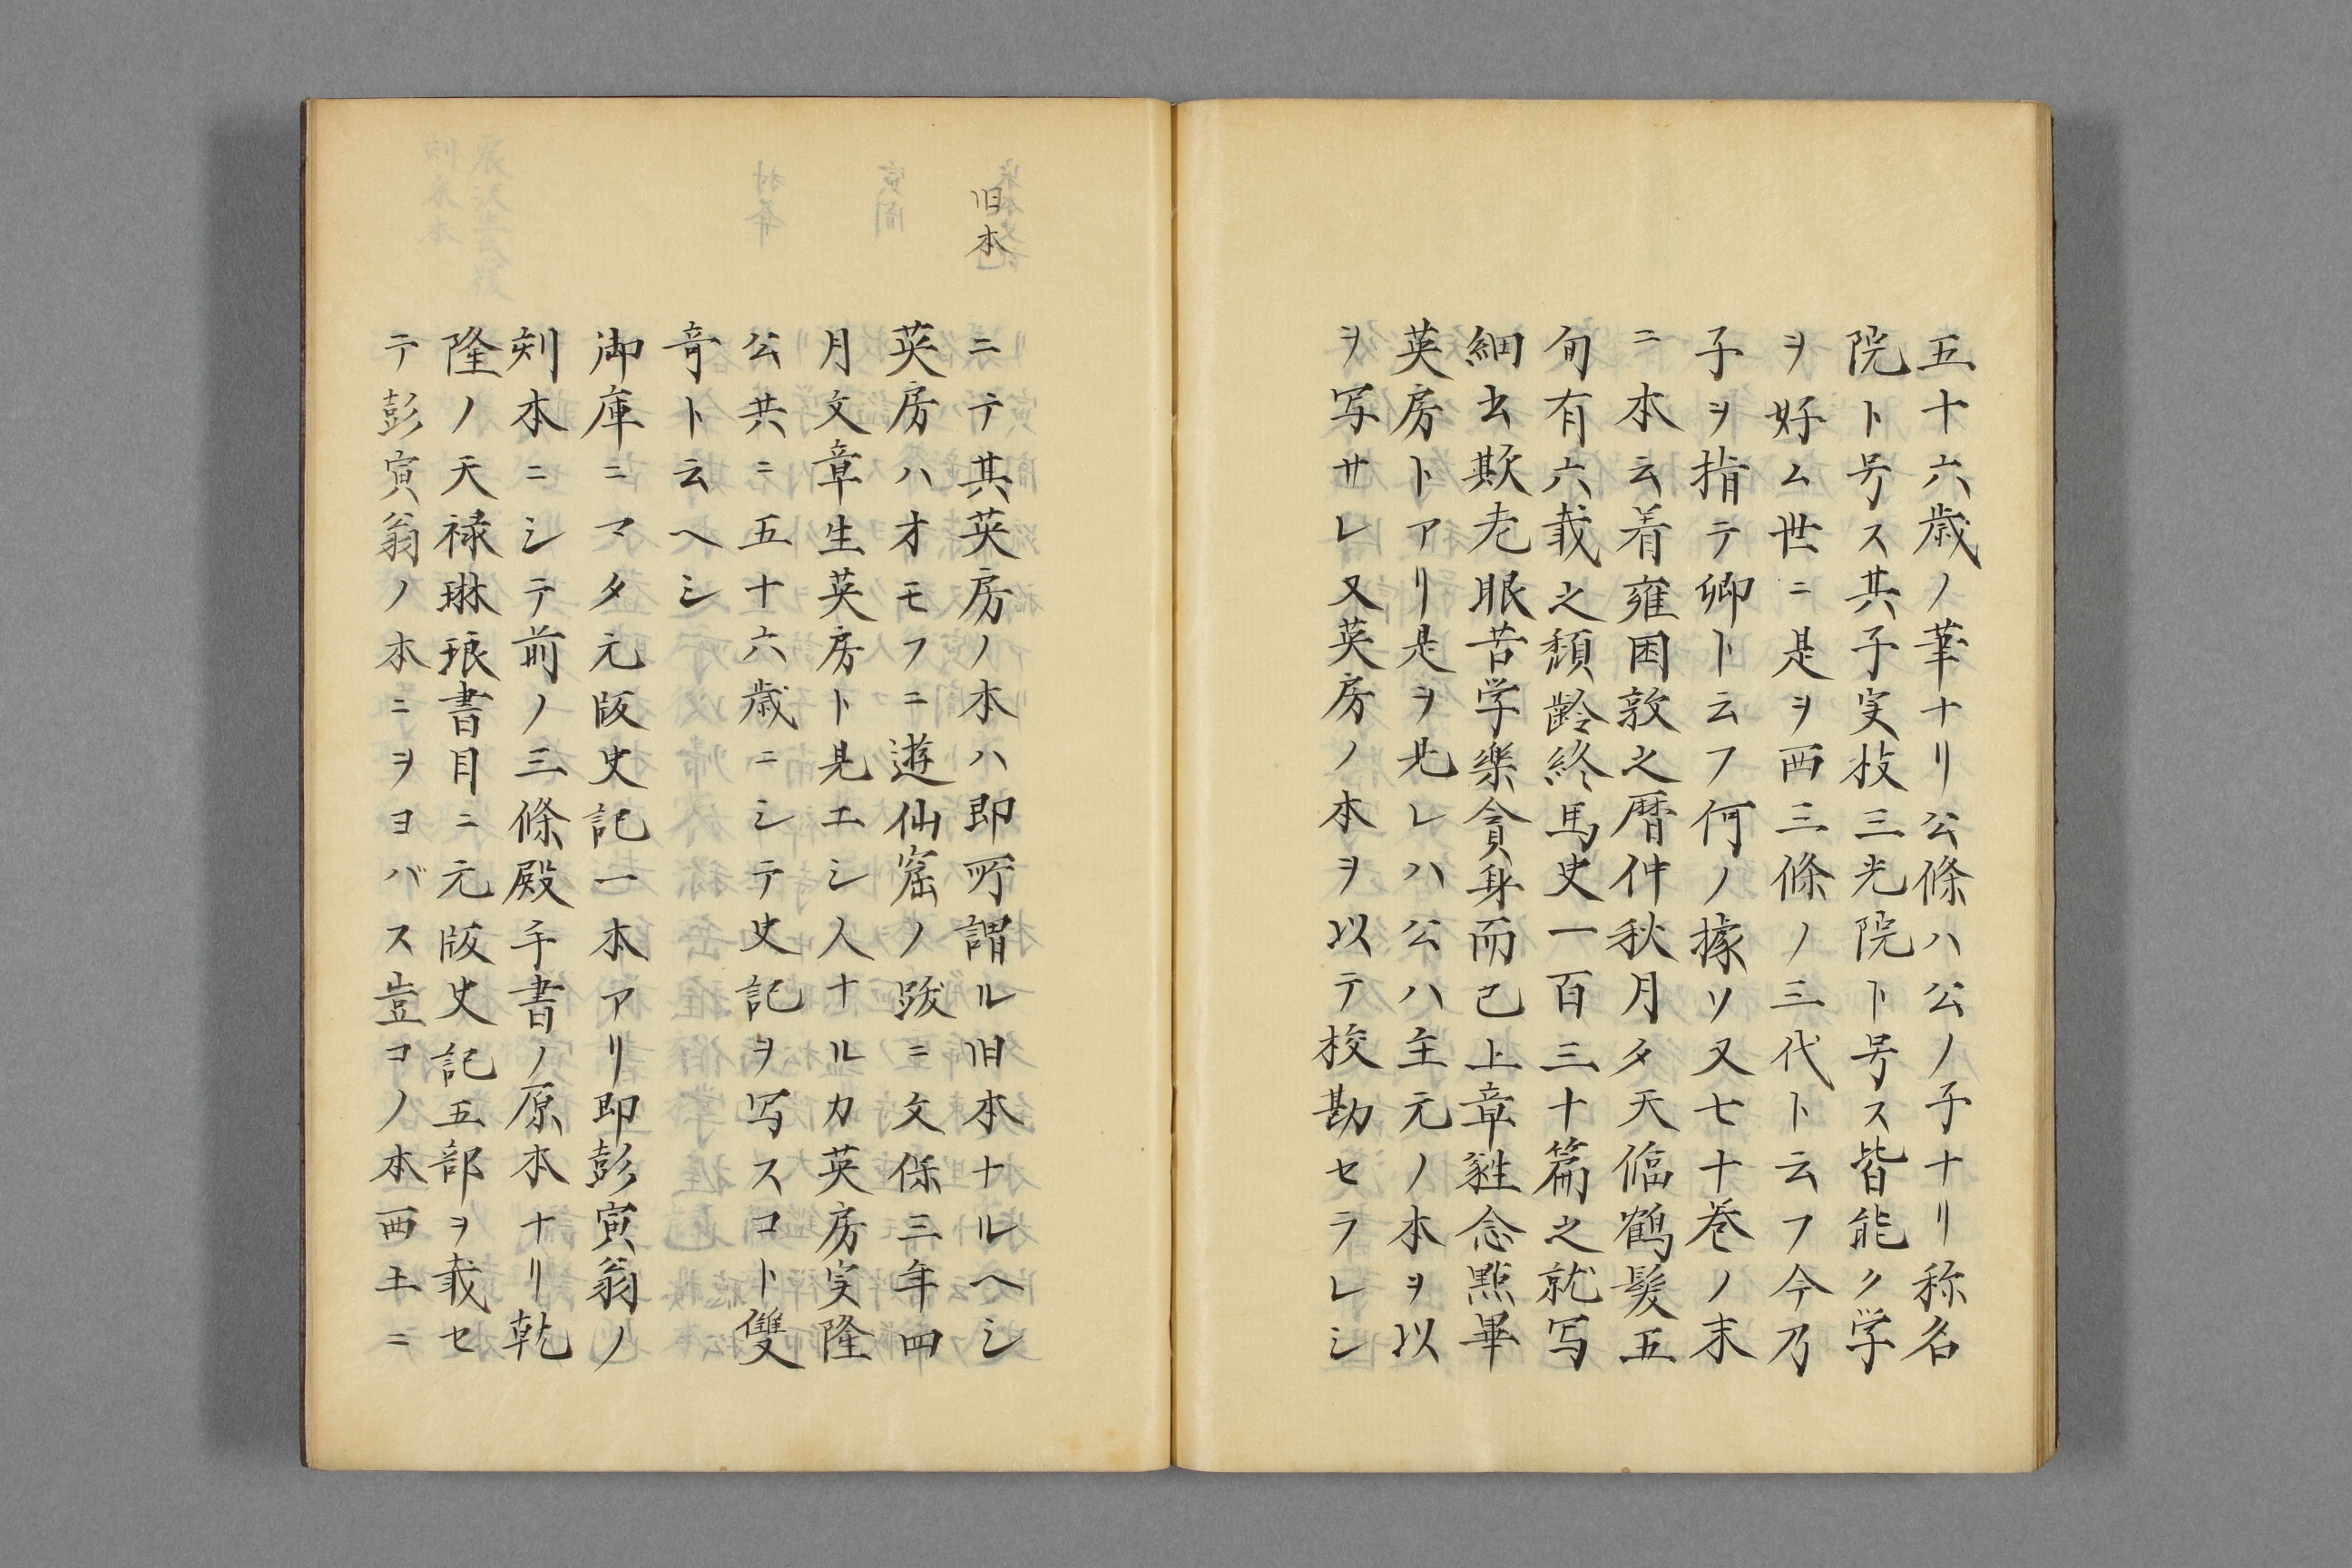 五十六歳ノ筆ナリ公條ハ公ノ子ナリ称名
院ト号ス其子実枝三光院ト号ス皆能ク学
ヲ好ム世ニ是ヲ西三條ノ三代ト云フ今乃
子ヲ指テ卿ト云フ何ノ據ソ又七十巻ノ末
ニ本云着雍困敦之暦仲秋月夕天偏鶴髪五
旬有六載之頽齢終馬史一百三十篇之就写
細玄欺老眼苦学楽貪身而已上章 念點畢
英房トアリ是ヲ見レハ公ハ至元ノ本ヲ以
ヲ写サレ又英房ノ本ヲ以テ校勘セラレシ
旧本
ニテ其英房ノ本ハ即所謂ル旧本ナルヘシ
英房ハオモフニ遊仙窟ノ跋ニ文保三年四
月文章生英房ト見エシ人ナルカ英房実隆
公共ニ五十六歳ニシテ史記ヲ写スコト雙
奇ト云ヘシ
御庫ニマタ元版史記一本アリ即彭寅翁ノ
刻本ニシテ前ノ三條殿手書ノ原本ナリ乾
隆ノ天禄琳琅書目ニ元版史記五部ヲ載セ
テ彭寅翁ノ本ニヲヨバス豈コノ本西土ニ